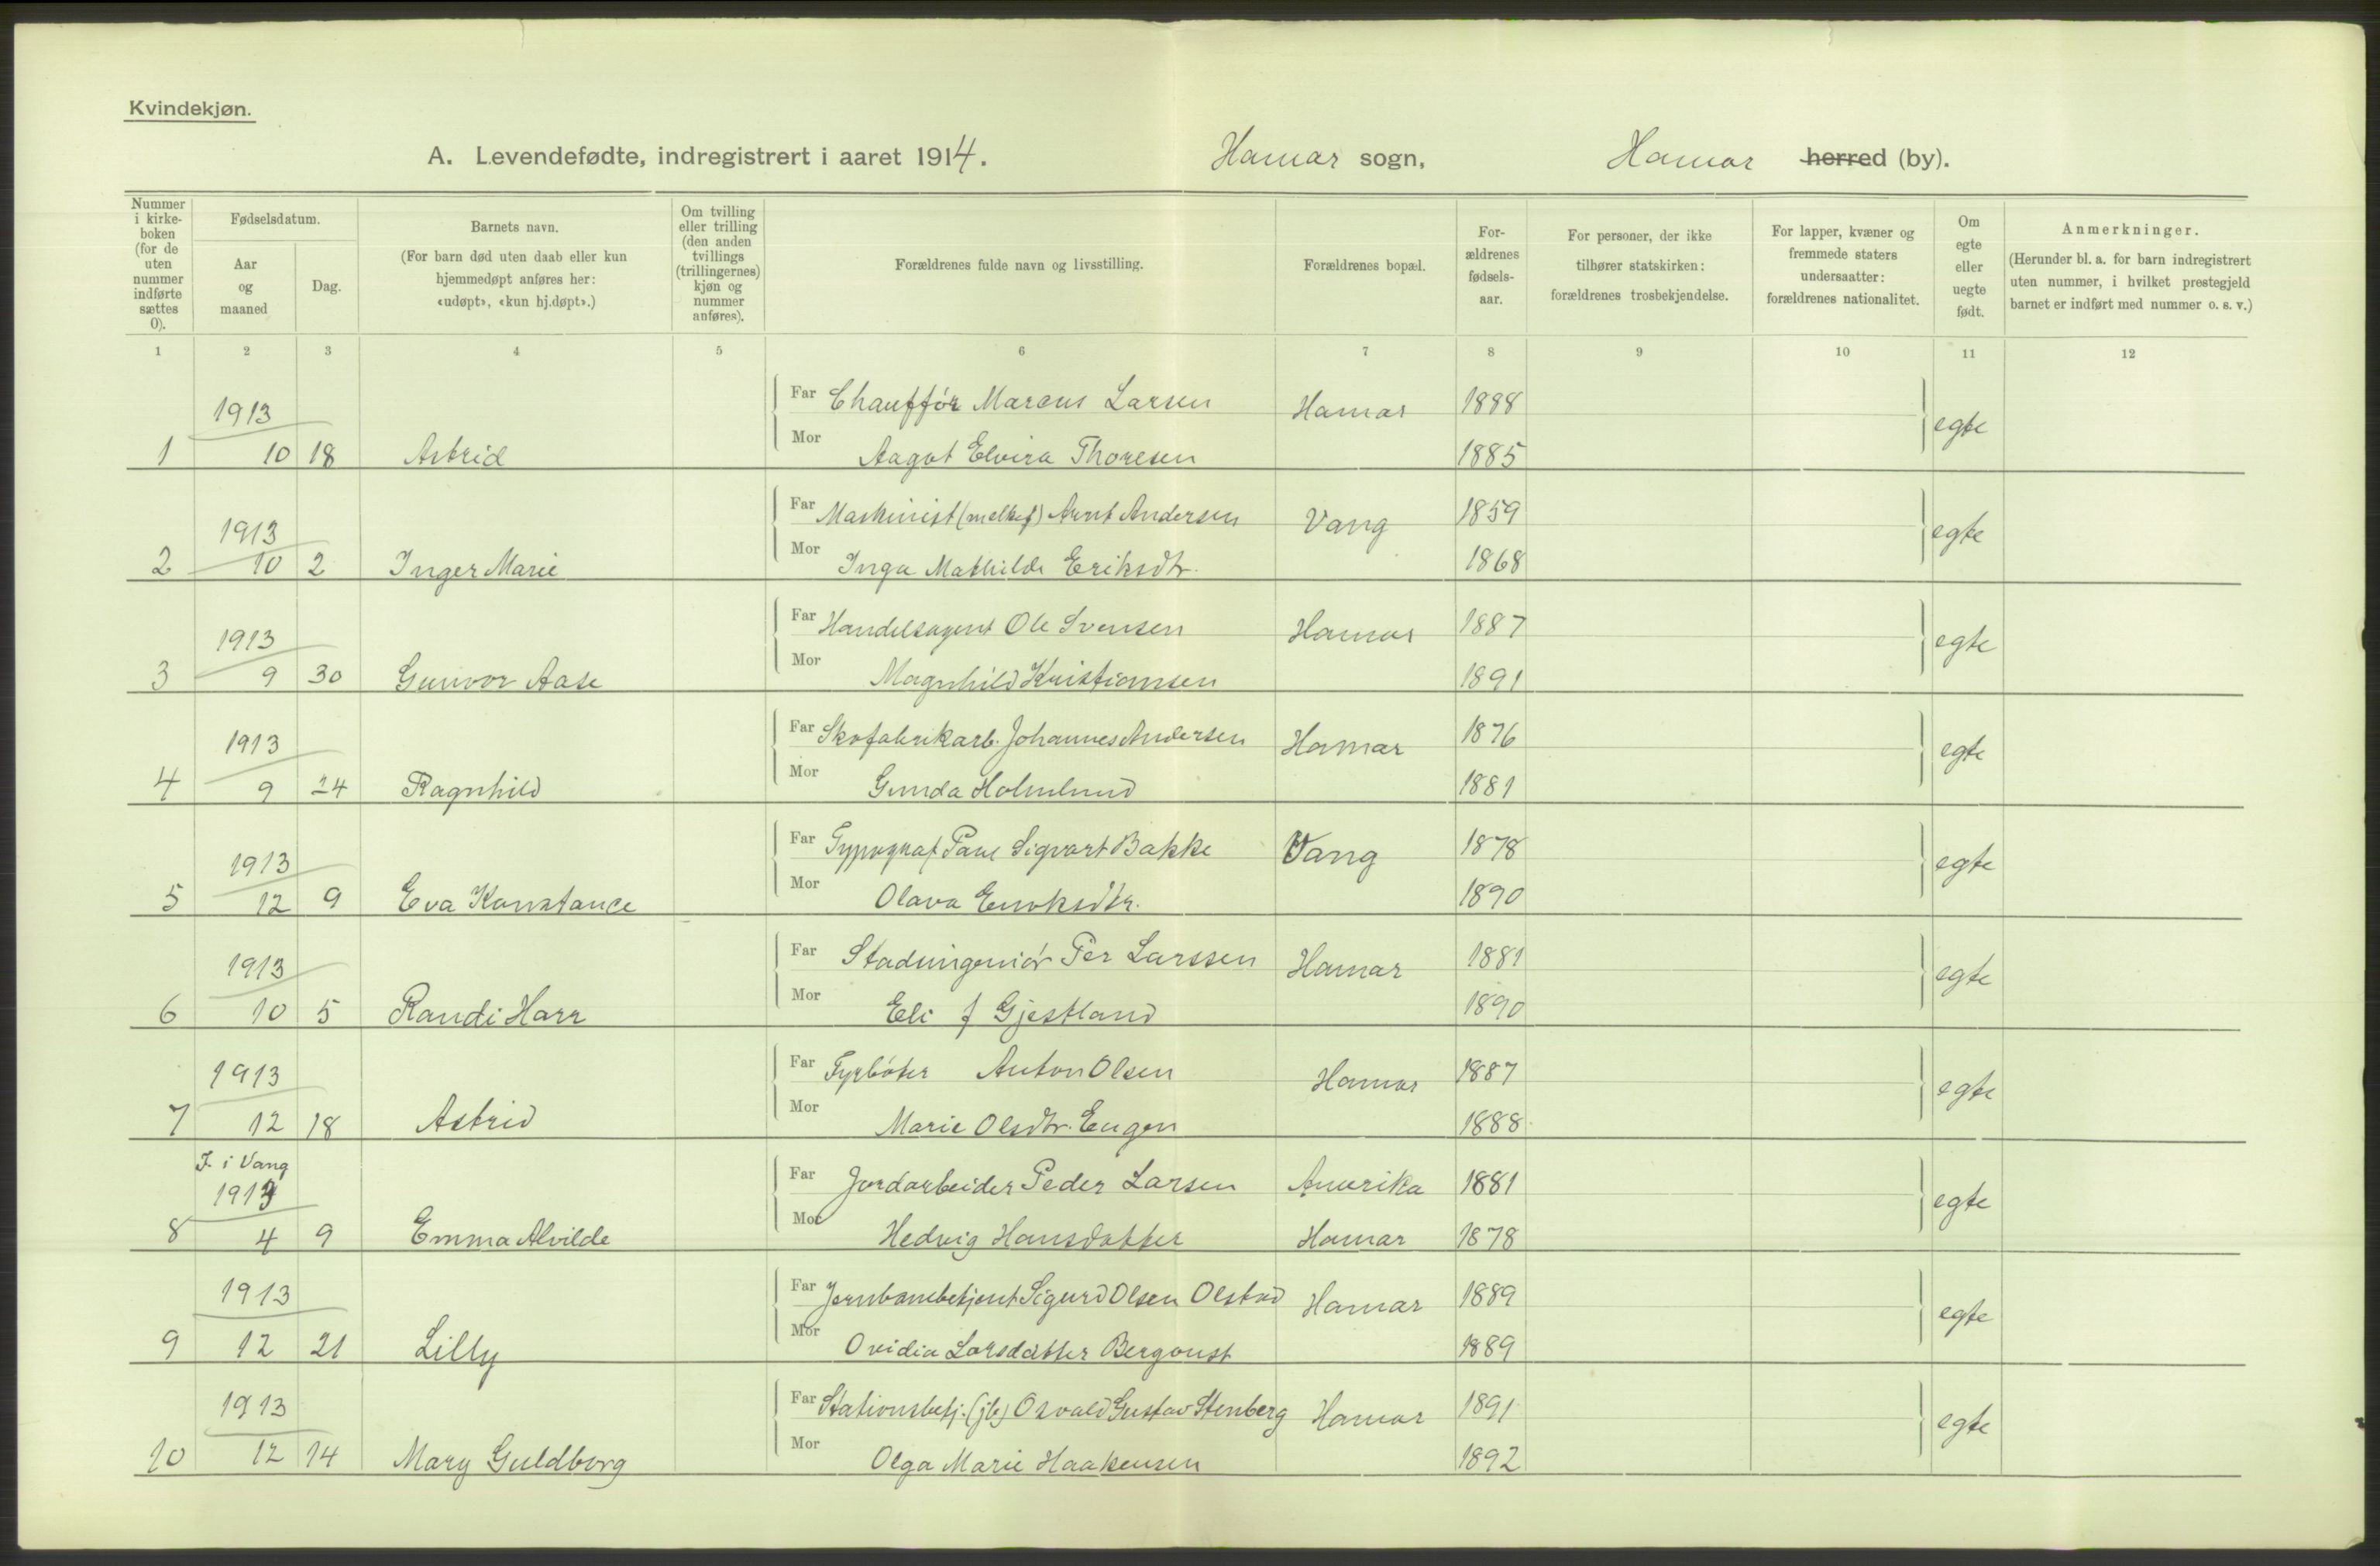 Kvindekjøn.
A. Levendefødte, indregistrert i aaret 1914. Hamar sogn, Hamar herred (by).
Nummer i kirke-boken (for de uten nummer indførte sættes 0).
Fødselsdatum.
Aar og maaned
Dag.
Barnets navn.
(For barn død uten daab eller kun hjemmedøpt anføres her: «udøpt», «kun hj.døpt».)
Om tvilling eller trilling (den anden tvillings (trillingernes) kjøn og nummer anføres).
Forældrenes fulde navn og livsstilling.
Forældrenes bopæl.
For-ældrenes fødsels-aar.
For personer, der ikke tilhører statskirken: forældrenes trosbekjendelse.
For lapper, kvæner og fremmede staters undersaatter: forældrenes nationalitet.
Om egte eller uegte født.
Anmerkninger.
(Herunder bl. a. for barn indregistrert uten nummer, i hvilket prestegjeld barnet er indført med nummer o. s. v.)
1 2 3 4 5 6 7 8 9 10 11 12
1913 Far Chaufför Marcus Larsen Hamar 1888 egte
1 10 18 Astrid Mor Aagot Elvira Thoresen 1885
1913 Far Maskinist (melkef) Arnt Andersen Vang 1859 egte
2 10 2 Inger Marie Mor Inga Mathilde Eriksdtr. 1868
1913 Far Handelsagent Ole Svensen Hamar 1887 egte
3 9 30 Gunvor Aase Mor Magnhild Kristiansen 1891
1913 Far Skofabrikarb. Johannes Andersen Hamar 1876 egte
4 9 24 Ragnhild Mor Gunda Holmlund 1881
1913 Far Typograf Paul Sigvart Bakke Vang 1878 egte
5 12 9 Eva Konstance Mor Olava Enoksdtr. 1890
1913 Far Stadsingeniör Per Larssen Hamar 1881 egte
6 10 5 Randi Harr Mor Eli f Gjestland 1890
1913 Far Fyrböter Anton Olsen Hamar 1887 egte
7 12 18 Astrid Mor Marie Olsdtr. Engen 1888
F. i Vang
1913 Far Jordarbeider Peder Larsen Amerika 1881 egte
8 4 9 Emma Alvilde Mor Hedvig Hansdatter Hamar 1878
1913 Far Jernbanebetjent Sigurd Olsen Olstad Hamar 1889 egte
9 12 21 Lilly Mor Ovidia Larsdatter 1889
1913 Far Stationsbetj. (jb) Osvald Gustav Stenberg Hamar 1891 egte
10 12 14 Mary Guldborg Mor Olga Marie Haakensen 1892